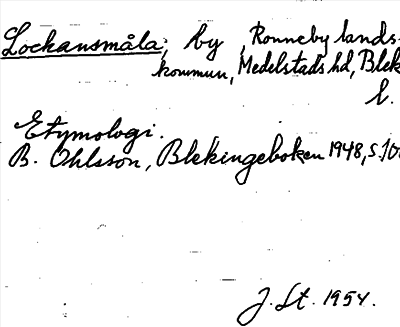 Lockansmåla, by, Ronneby lands-
kommun, Medelstads hd, Blek
l.
Etymologi.
B. Ohlsson, Blekingeboken 1948, s. 10
J. St. 1954.